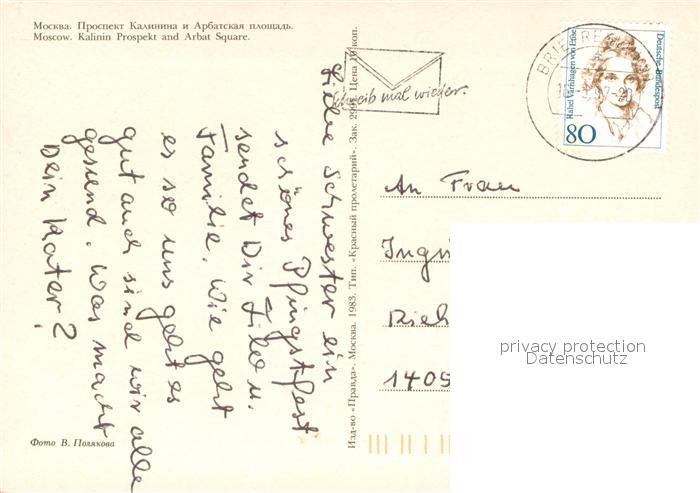 Москва. Проспект Калинина и Арбатская площадь.
Moscow. Kalinin Prospekt and Arbat Square.
Liebe Schwester ein
schönes Pfingstfest
sendet Dir Filo u.
Familie. Wie geht
es so uns geht es
gut auch sind wir alle
gesund. Was macht
Dein Kater?
Фото В. Полякова
Изд-во «Правда». Москва. 1983. Тип. «Красный пролетарий». Зак. 299. Цена 10 коп.
Schreib mal wieder.
BRIEF
Deutsche Bundespost
Rahel Varnhagen von Ense
80
An Frau
Ingri
Rieh
1405
privacy protection
Datenschutz